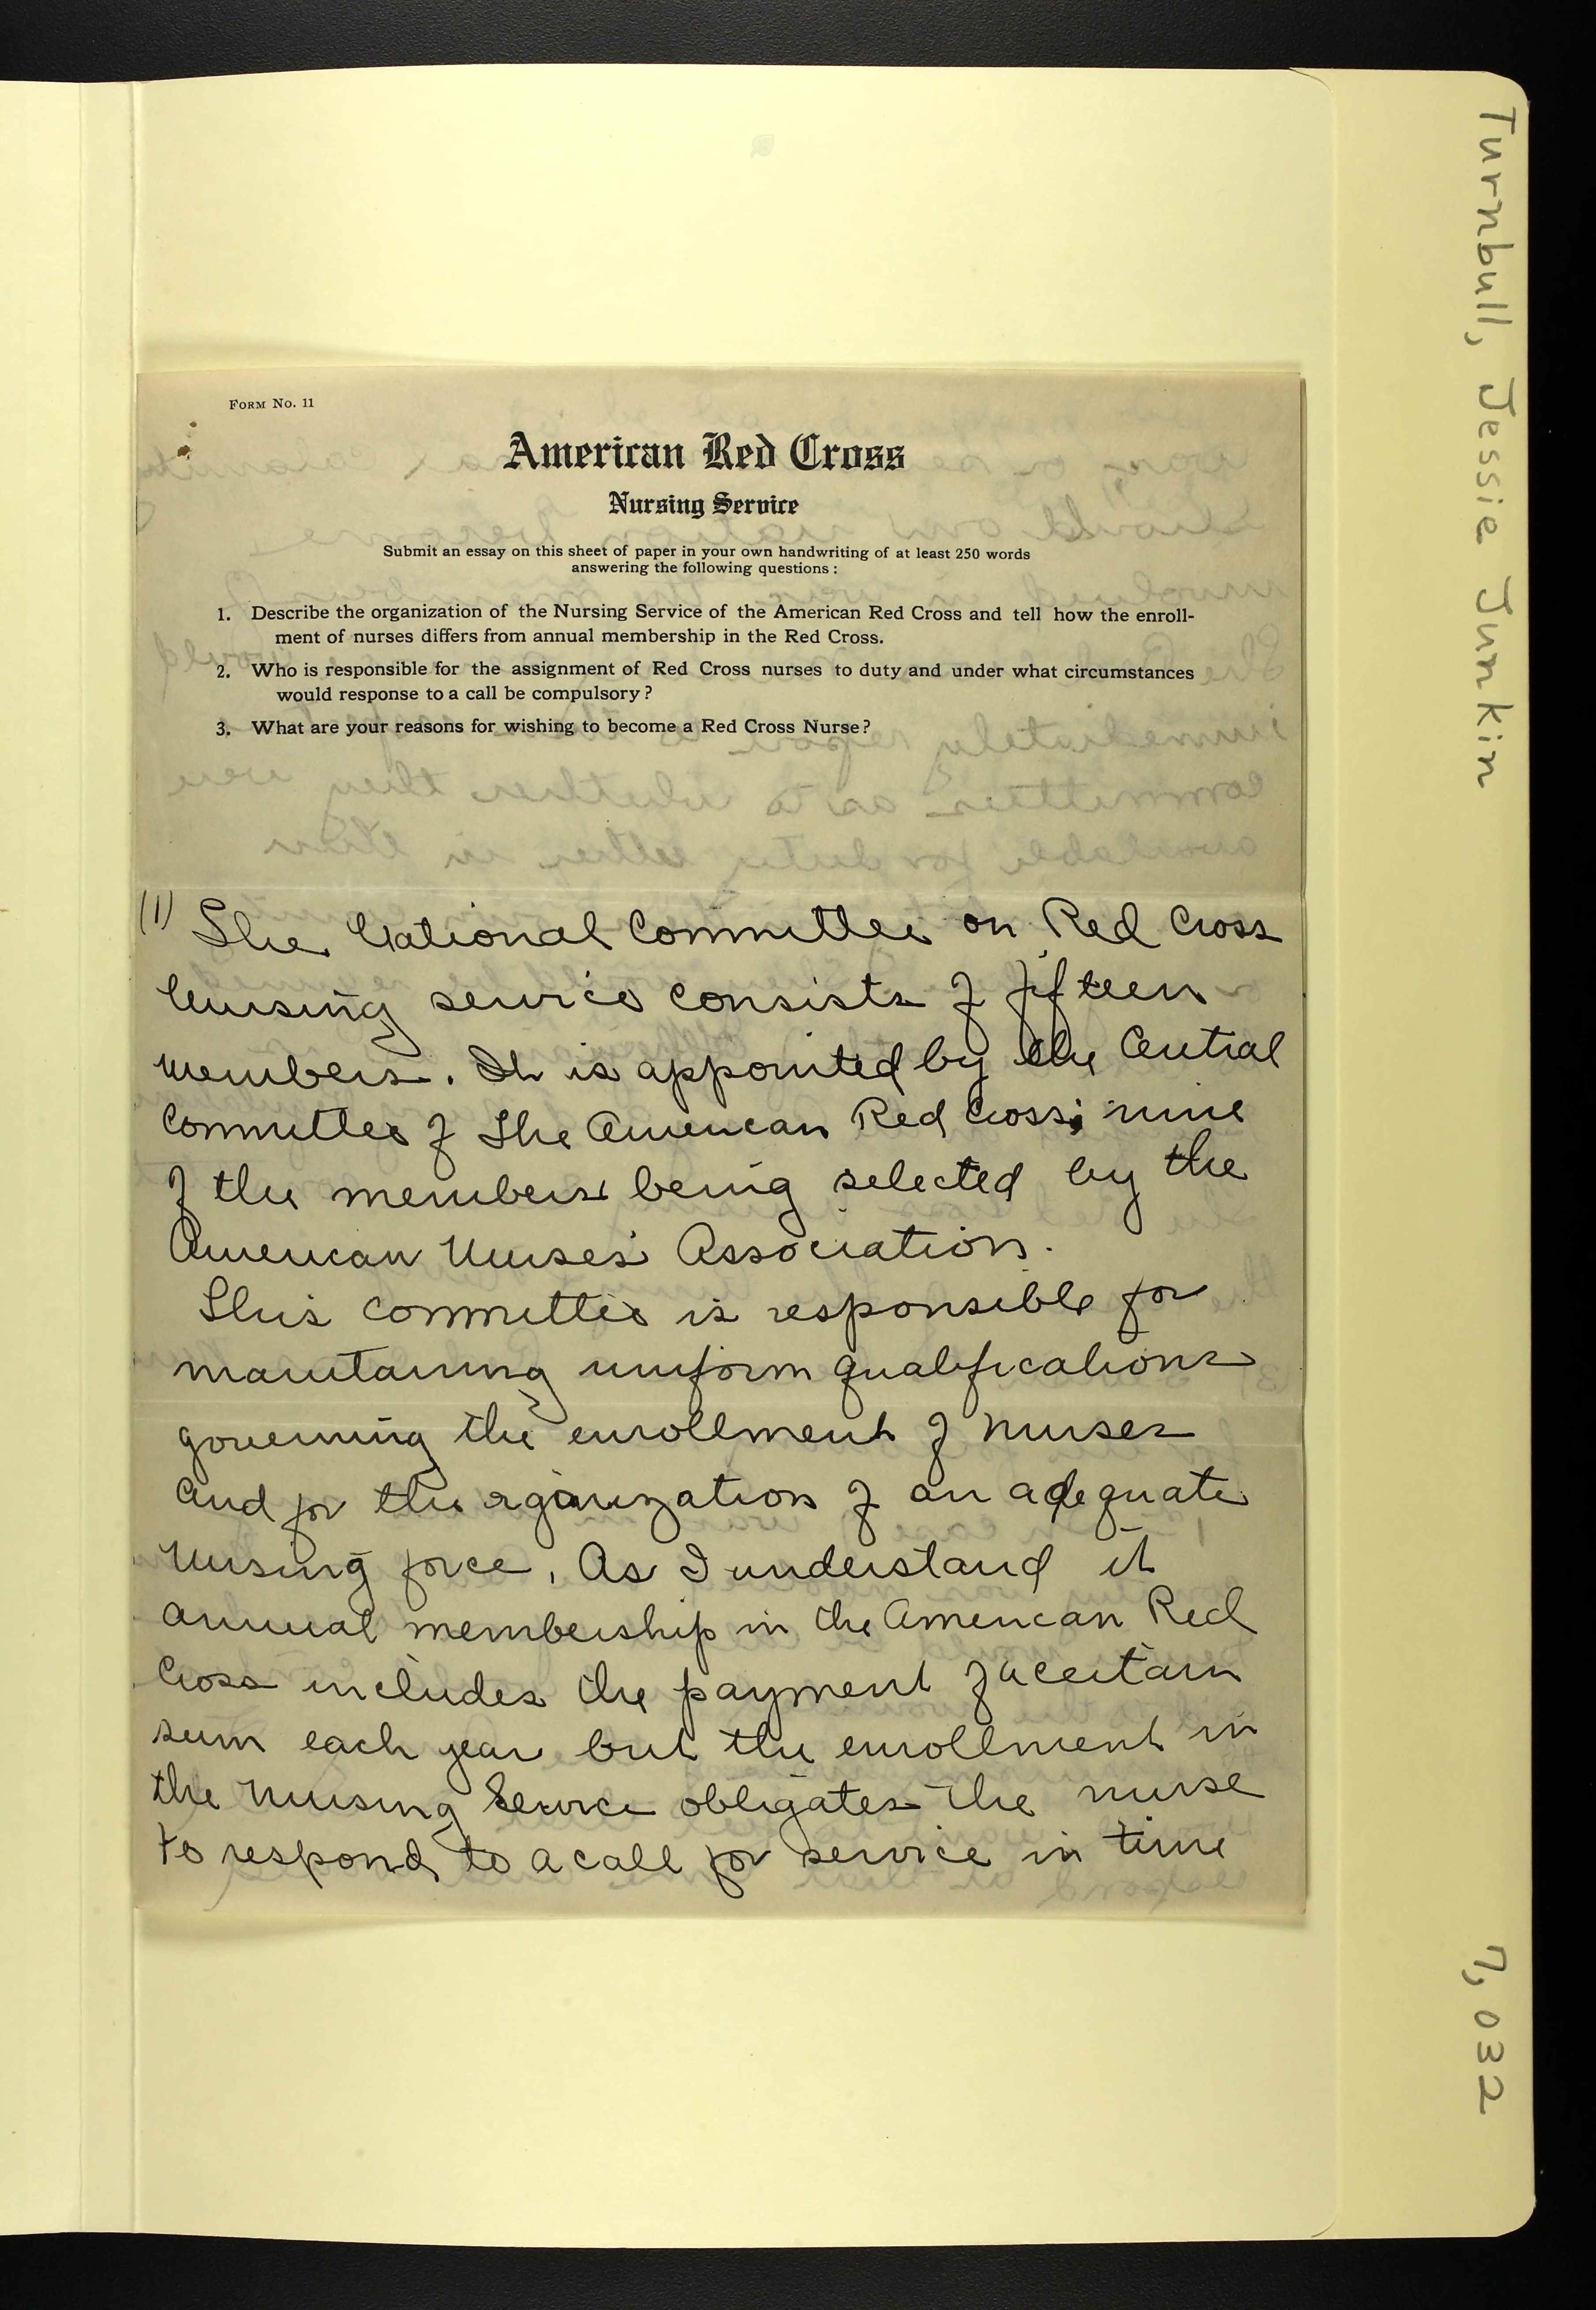 Form No. 11
American Red Cross
Nursing Service
Submit an essay on this sheet of paper in your own handwriting of at least 250 words
answering the following questions:
1. Describe the organization of the Nursing Service of the American Red Cross and tell how the enroll-
ment of nurses differs from annual membership in the Red Cross.
2. Who is responsible for the assignment of Red Cross nurses to duty and under what circumstances
would response to a call be compulsory?
3. What are your reasons for wishing to become a Red Cross Nurse?
(1) The National Committee on Red Cross
Nursing service consists of fifteen
members. It is appointed by the Central
Committee of the American Red Cross; nine
of the members being selected by the
American Nurses' Association.
This committee is responsible for
maintaining uniform qualifications
governing the enrollment of nurses
and for the organization of an adequate
nursing force. As I understand it
annual membership in the American Red
Cross includes the payment of a certain
sum each year but the enrollment in
the Nursing Service obligates the nurse
to respond to a call for service in time
Turnbull, Jessie Junkin
7,032